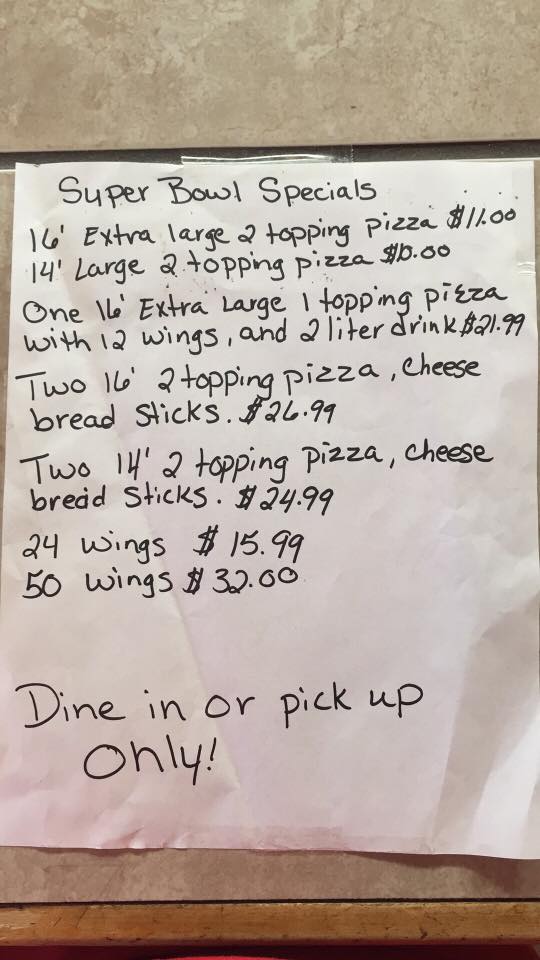 Super Bowl Specials
16' Extra large 2 topping pizza $11.00
14' Large 2 topping pizza $10.00
One 16' Extra Large 1 topping pizza
with 12 wings, and 2 liter drink $21.99
Two 16' 2 topping pizza, cheese
bread sticks. $26.99
Two 14' 2 topping pizza, cheese
bread sticks. $24.99
24 wings $15.99
50 wings $32.00
Dine in or pick up
Only!